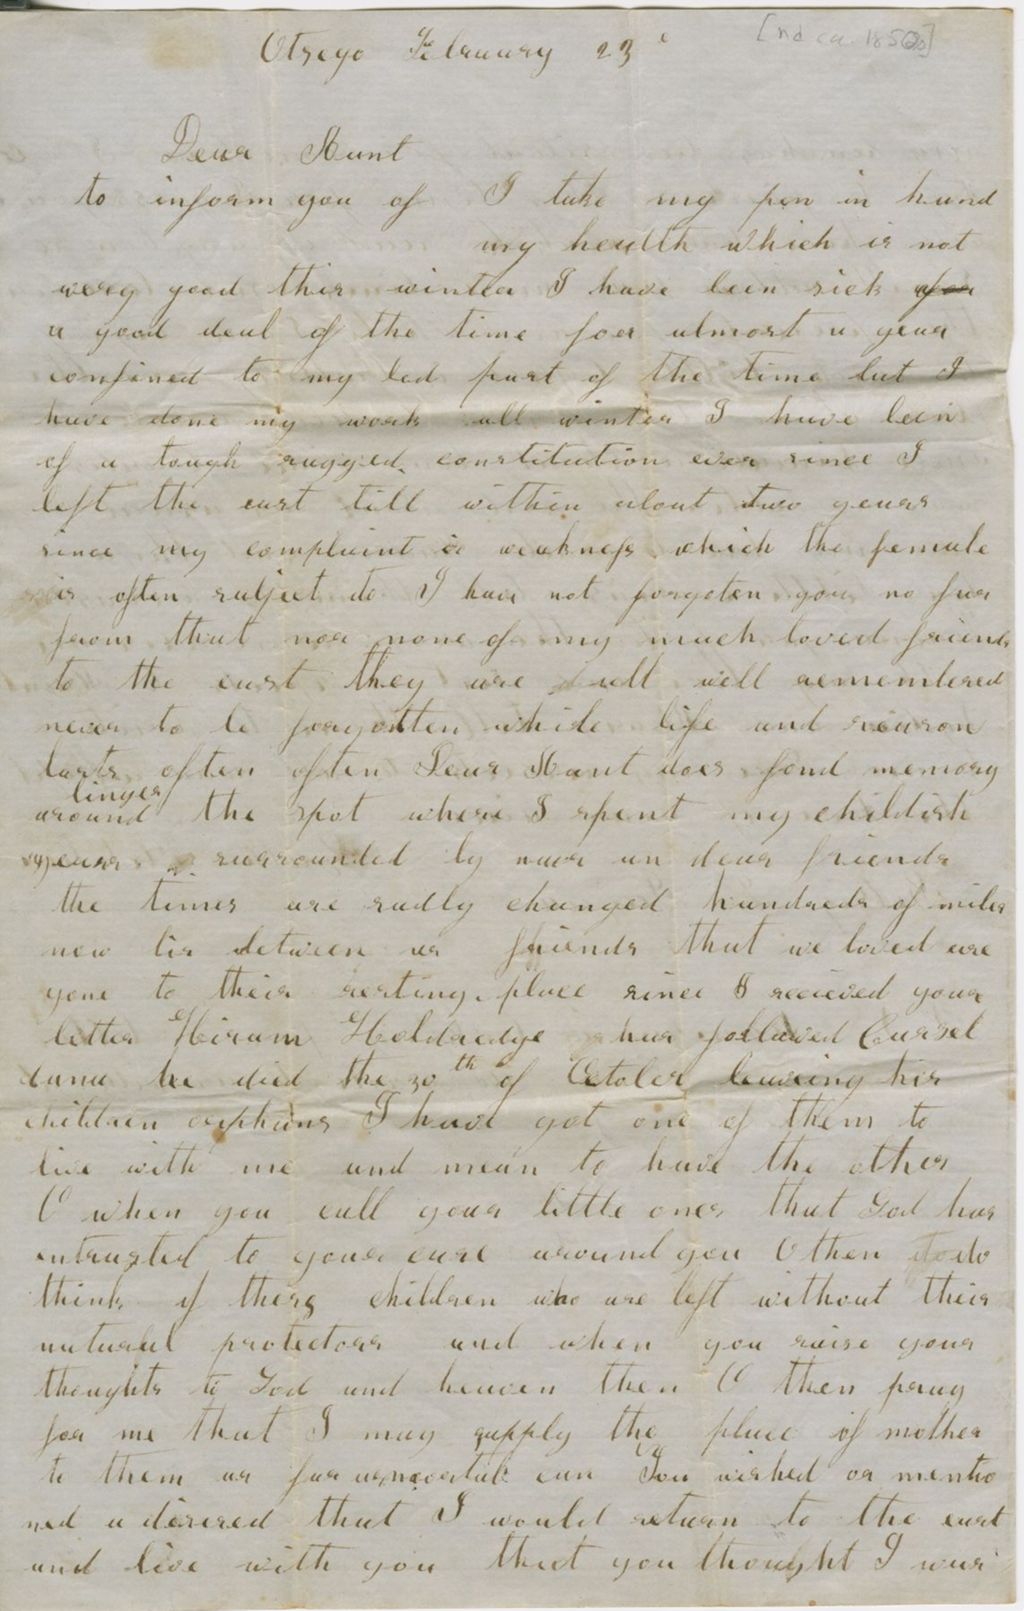 [nd ca. 1850s]
Otsego February 23
Dear Aunt
I take my pen in hand
to inform you of
my health which is not
very good this winter I have been sick for
a good deal of the time for almost a year
confined to my bed part of the time but I
have done my work all winter I have been
of a tough rugged constitution ever since I
left the east till within about two years
since my complaint is weakness which the female
is often subject to I have not forgoten you no far
from that nor none of my much loved friends
to the east they are all well remembered
never to be forgotten while life and reason
lasts often often Dear Aunt does fond memory
linger
around the spot where I spent my childish
years surrounded by near an dear friends
the times are sadly changed hundreds of miles
now lie between us friends that we loved are
gone to their resting place since I recieved your
letter Hiram Holdredge has followed Cursel
dana he died the 30th of October leaving his
children orphans I have got one of them to
live with me and mean to have the other
O when you call your little ones that God has
intrusted to your care around you O then do
think of thers children who are left without their
natural protectors and when you raise your
thoughts to God and heaven then O then pray
for me that I may supply the place of mother
to them as far as mortal can You wished or mentio
ned a desired that I would return to the east
and live with you that you thought I was